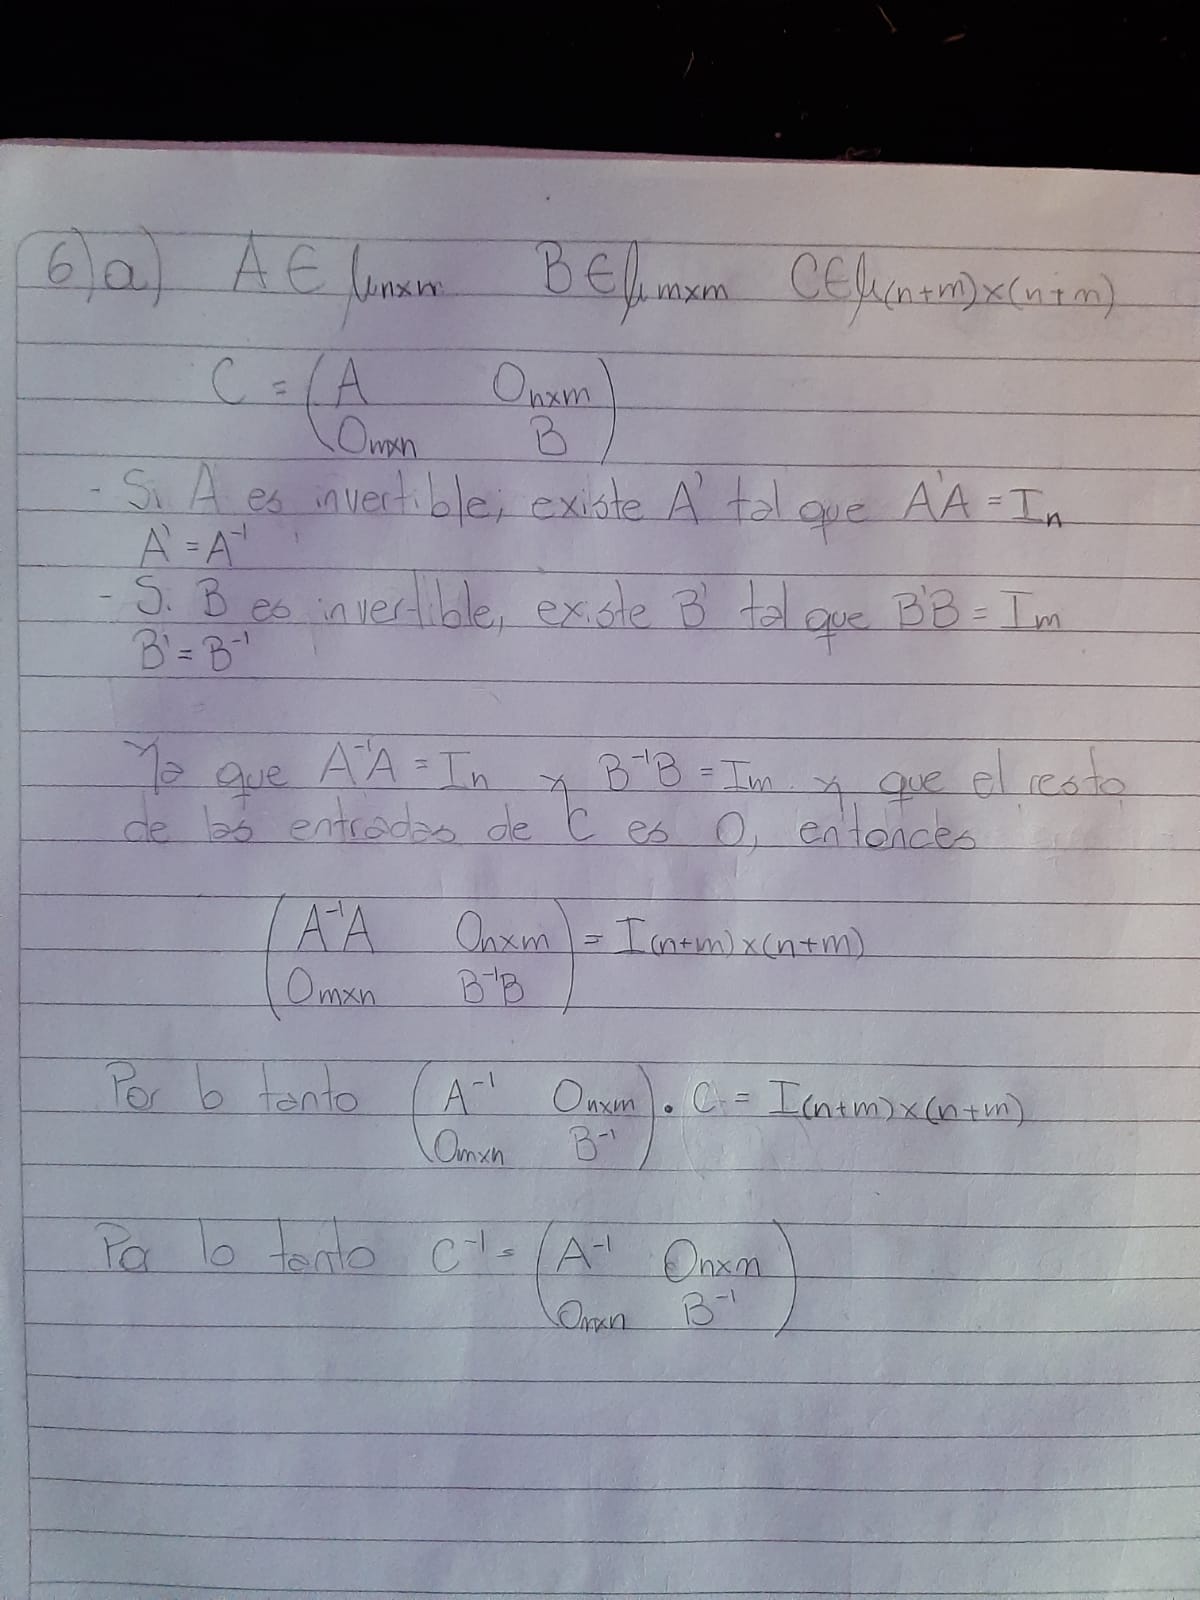 6)a) A ∈ μnxm B ∈ μmxm C ∈ μ(n+m)x(n+m)
C = (A Onxm
Omxn B)
- Si A es invertible, existe A' tal que A'A = In
A' = A⁻¹
- Si B es invertible, existe B' tal que B'B = Im
B' = B⁻¹
Ya que A⁻¹A = In y B⁻¹B = Im y que el resto
de las entradas de C es 0, entonces
(A⁻¹A Onxm
Omxn B⁻¹B) = I(n+m)x(n+m)
Por lo tanto (A⁻¹ Onxm
Omxn B⁻¹) · C = I(n+m)x(n+m)
Por lo tanto C⁻¹ = (A⁻¹ Onxm
Omxn B⁻¹)